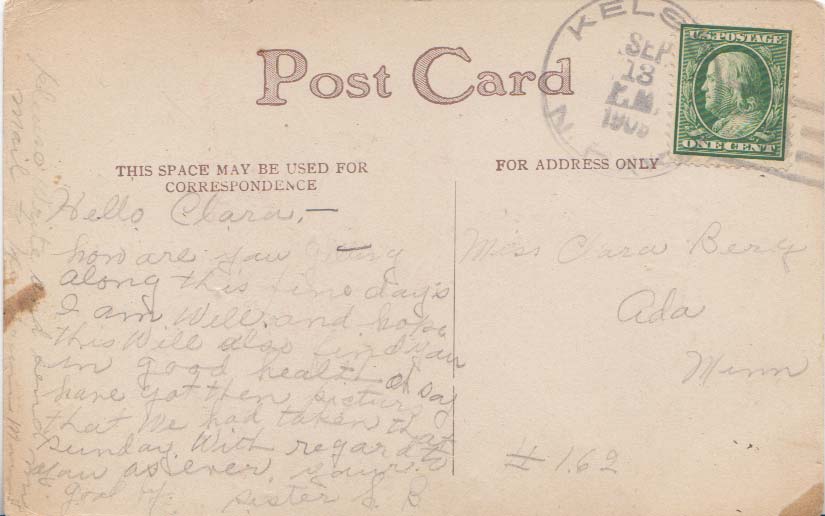 Post Card
KELS
SEP
18
A.M.
1909
N.
U.S. POSTAGE
ONE CENT
THIS SPACE MAY BE USED FOR
CORRESPONDENCE
FOR ADDRESS ONLY
Hello Clara,—
how are you
along this fine day's
I am Well. and hope
this Will also find you
in good health
have got then picture
that We had taken that
Sunday. With regard to
you as ever. your
good by. Sister S. B
Miss Clara Berg
Ada
Minn
# 162
Write and send my
mail to